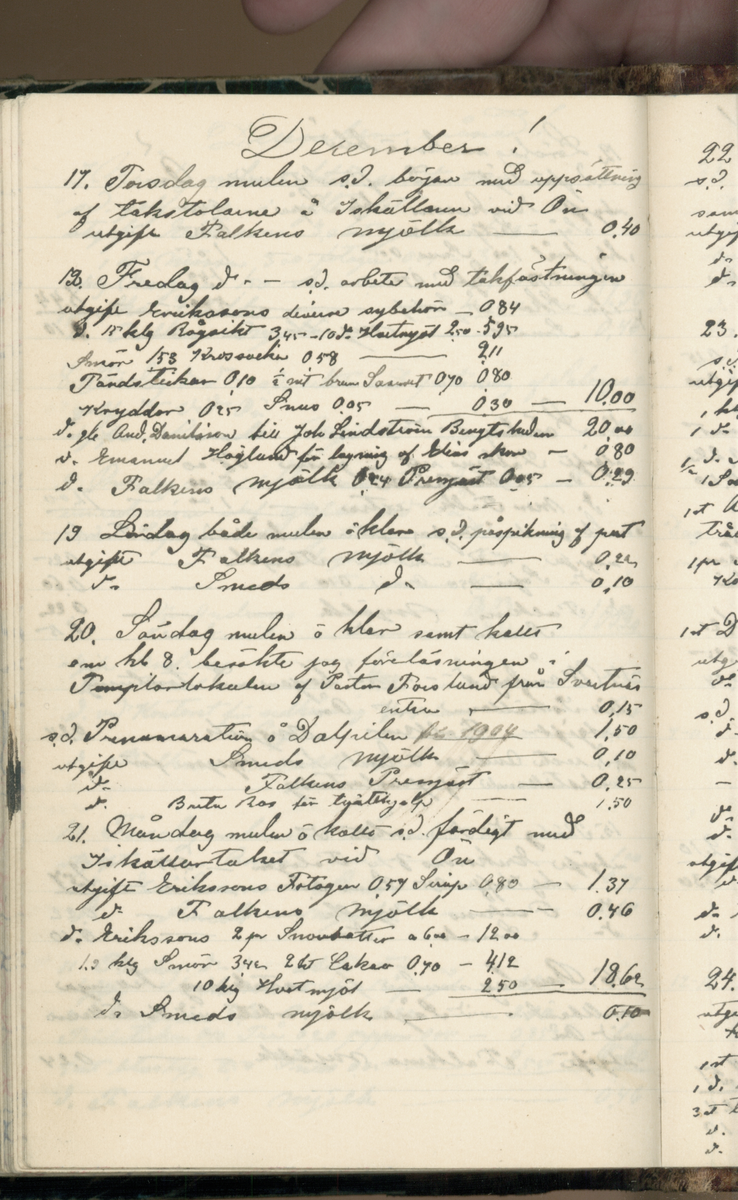 December!
17. Torsdag mulen s.d. början med uppsättning
af takstolarne å Iskällaren vid Ön
utgift Falkens mjölk — 0,40
18. Fredag d:o — s.d. arbete med takfästningen
utgift Erikssons diverse sybehör — 0.84
d. 15 klg Rågsikt 3,45 - 10 d:o Hvetmjöl 2.50 - 5.95
Smör 1.53 0.58 — 2.11
Tändstickor 0.10 ½ mt brun Sammet 0.70 0.80
Kryddor 0.25 Snus 0.05 — 0.30 — 10.00
d:o And. Danielsson till Joh Lindström Bengtsheden 20.00
d. Emanuel Höglund för lagning af Elias skor — 0.80
d. Falkens mjölk 0.24 Pressjäst 0.05 — 0.29
19 Lördag både mulen ö klar s.d. påspikning af
utgift Falkens mjölk — 0,22
d:o Smeds d:o — 0,10
20. Söndag mulen ö klar samt kallt
em kl 8. besökte jag föreläsningen i
Templarlokalen af Pastor Forslund från Svartnäs
entre — 0,15
s.d. Prenumeration å Dalpilen 1904 1,50
utgift Smeds mjölk — 0,10
d:o Falkens Pressjäst — 0,25
d. Brita för tvätthjelp — 1.50
21. Måndag mulen ö kallt s.d. färdigt med
Iskällartaket vid Ön
utgift Erikssons Fotogen 0.57 Sirap 0.80 — 1.37
d. Falkens mjölk — 0.46
d:o Erikssons 2 pr a 6.00 - 12.00
1.2 klg Smör 3.42 2 Cakao 0.70 - 4.12
10 klg Hvetmjöl — 2.50 18.62
d:o Smeds mjölk — 0.10
22
s.d.
utgift
d:o
23.
s.d.
utgift
24.